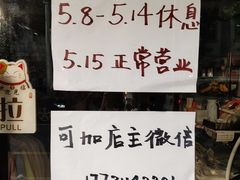 5.8-5.14休息
5.15 正常营业
拉
PULL
可加店主微信